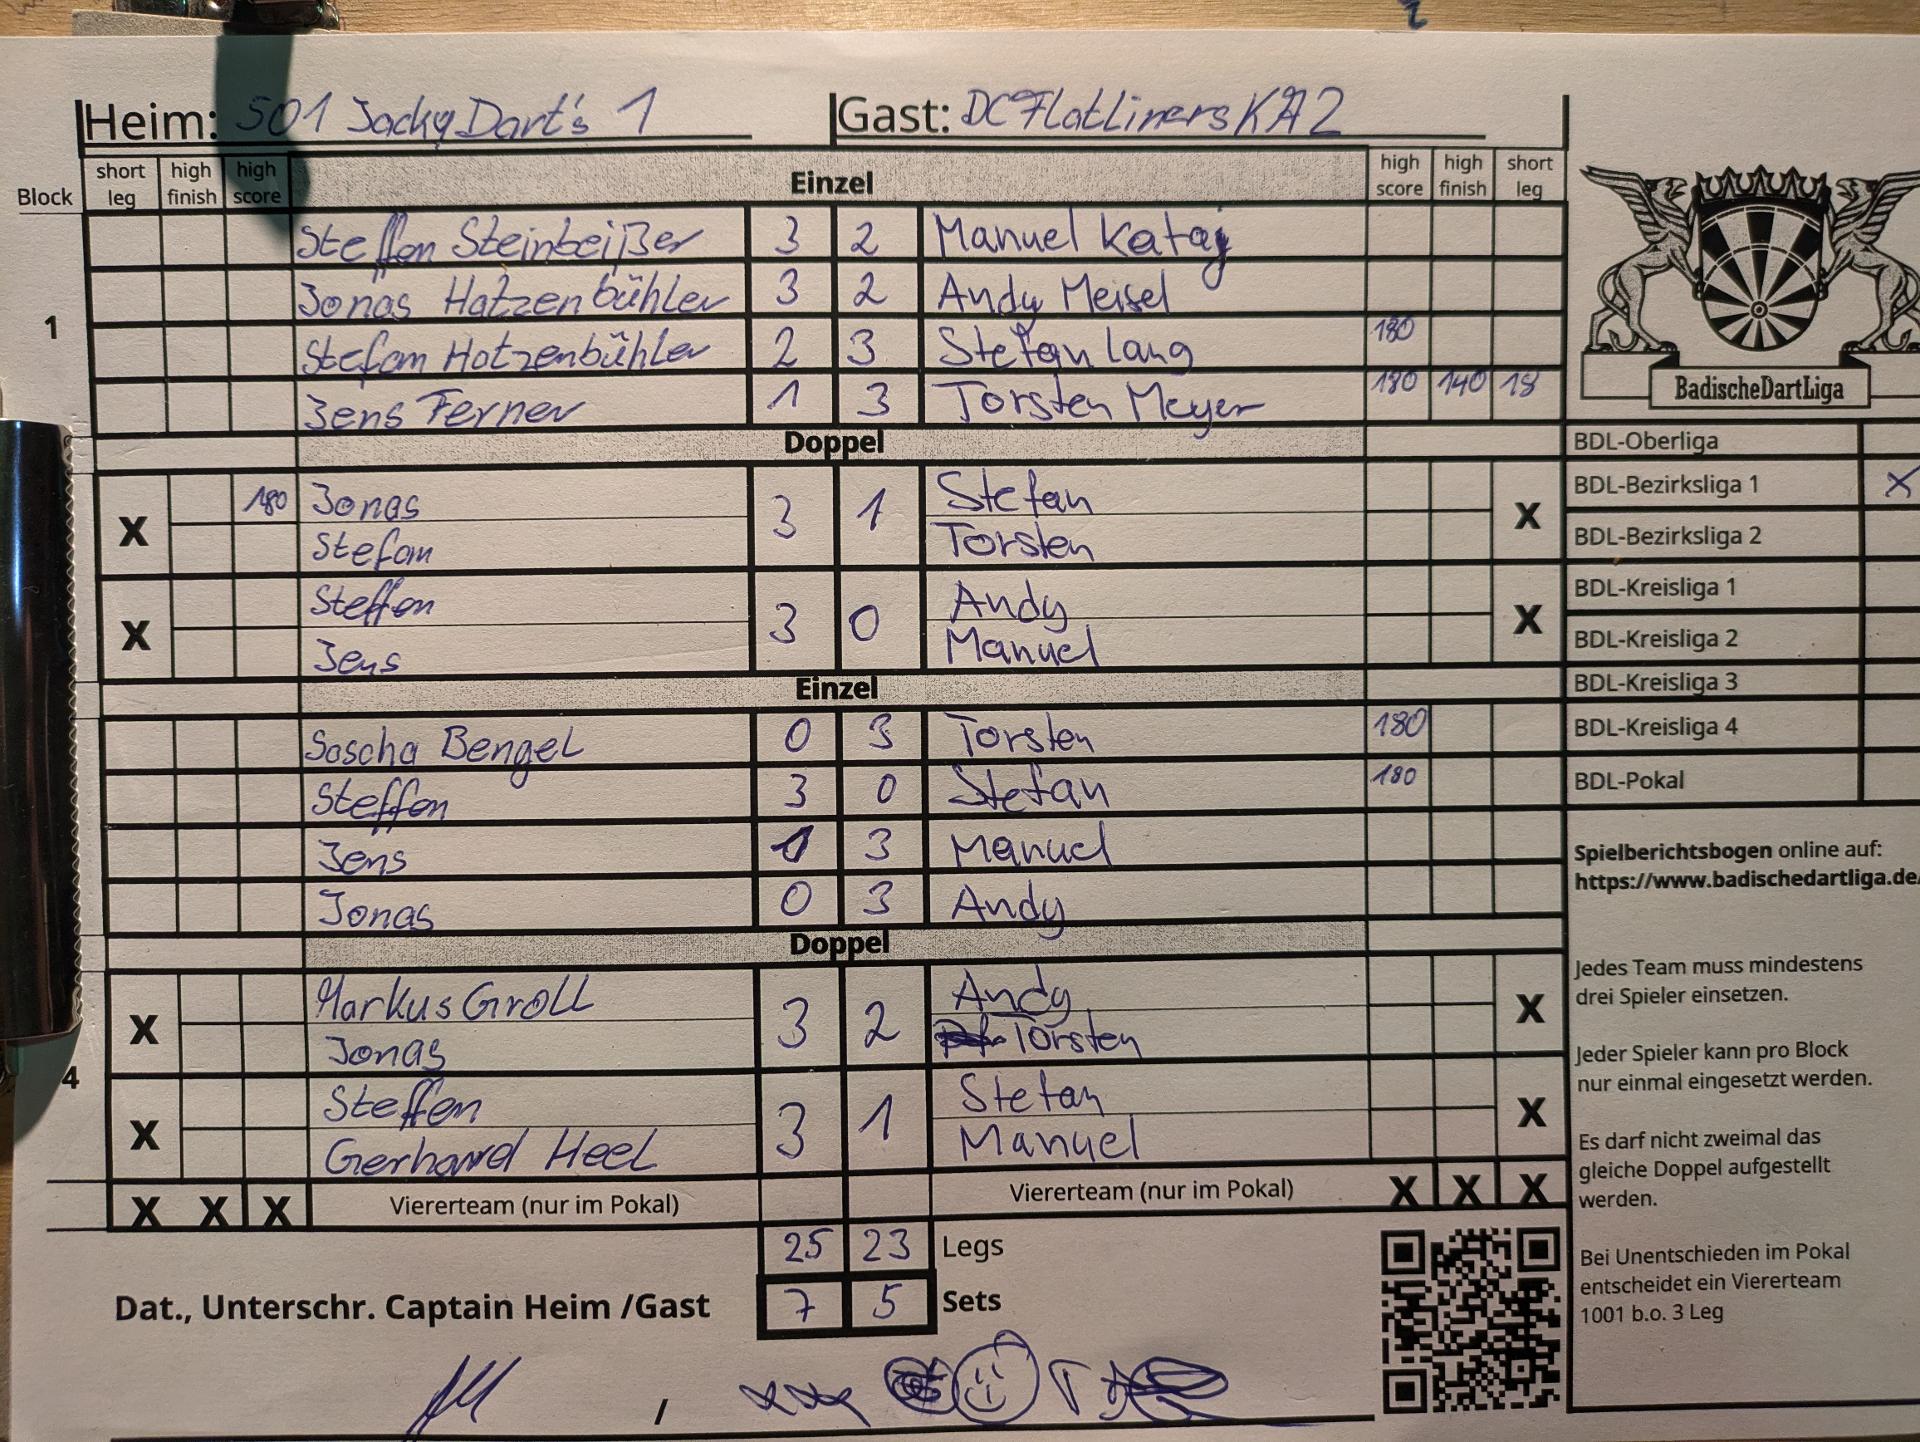 Heim: 501 JackyDart's 1 Gast: DCFlatLinersKA2
Block short leg high finish high score Einzel high score high finish short leg
Steffen Steinbeißer 3 2 Manuel Kataj
Jonas Hatzenbühler 3 2 Andy Meisel
1
Stefan Hatzenbühler 2 3 Stefan Lang 180
Jens Ferner 1 3 Torsten Meyer 180 140 18
BadischeDartLiga
Doppel
BDL-Oberliga
X 180 Jonas 3 1 Stefan X
Stefan Torsten
BDL-Bezirksliga 1 X
BDL-Bezirksliga 2
X Steffen 3 0 Andy X
Jens Manuel
BDL-Kreisliga 1
BDL-Kreisliga 2
Einzel
BDL-Kreisliga 3
Sascha Bengel 0 3 Torsten 180
BDL-Kreisliga 4
Steffen 3 0 Stefan 180
BDL-Pokal
Jens 3 Manuel
Jonas 0 3 Andy
Spielberichtsbogen online auf:
https://www.badischedartliga.de/
Doppel
X Markus Groll 3 2 Andy X
Jonas Torsten
4
X Steffen 3 1 Stefan X
Gerhard Heel Manuel
Jedes Team muss mindestens
drei Spieler einsetzen.
Jeder Spieler kann pro Block
nur einmal eingesetzt werden.
Es darf nicht zweimal das
gleiche Doppel aufgestellt
werden.
X X X Viererteam (nur im Pokal) Viererteam (nur im Pokal) X X X
25 23 Legs
Dat., Unterschr. Captain Heim /Gast 7 5 Sets
Bei Unentschieden im Pokal
entscheidet ein Viererteam
1001 b.o. 3 Leg
/